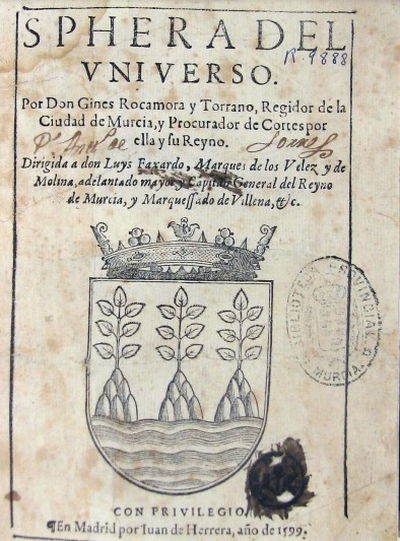 SPHERA DEL
VNIVERSO.
R. 9888
Por Don Gines Rocamora y Torrano, Regidor de la
Ciudad de Murcia, y Procurador de Cortes por
ella y su Reyno.
Dirigida a don Luys Faxardo, Marques de los Velez y de
Molina, adelantado mayor y Capitan General del Reyno
de Murcia, y Marquessado de Villena, &c.
BIBLIOTECA PROVINCIAL D
MURCIA
CON PRIVILEGIO
¶En Madrid por Iuan de Herrera, año de 1599.